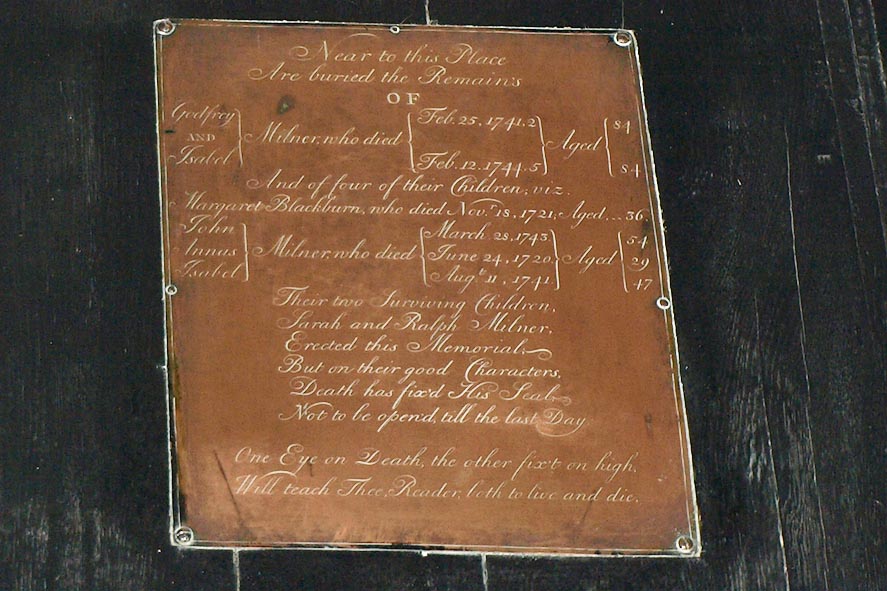 Near to this Place
Are buried the Remains
OF
Godfrey AND Isabel Milner, who died Feb. 25, 1741.2 Feb. 12, 1744.5 Aged 84 84
And of four of their Children, viz.
Margaret Blackburn, who died Nov.r 18, 1721, Aged... 36.
John Annas Isabel Milner, who died March 28, 1743 June 24, 1720 Aug.t 11, 1741 Aged 54 29 47
Their two Surviving Children,
Sarah and Ralph Milner,
Erected this Memorial,
But on their good Characters,
Death has fix'd His Seal,
Not to be open'd, till the last Day
One Eye on Death, the other fix't on high,
Will teach Thee, Reader, both to live and die.